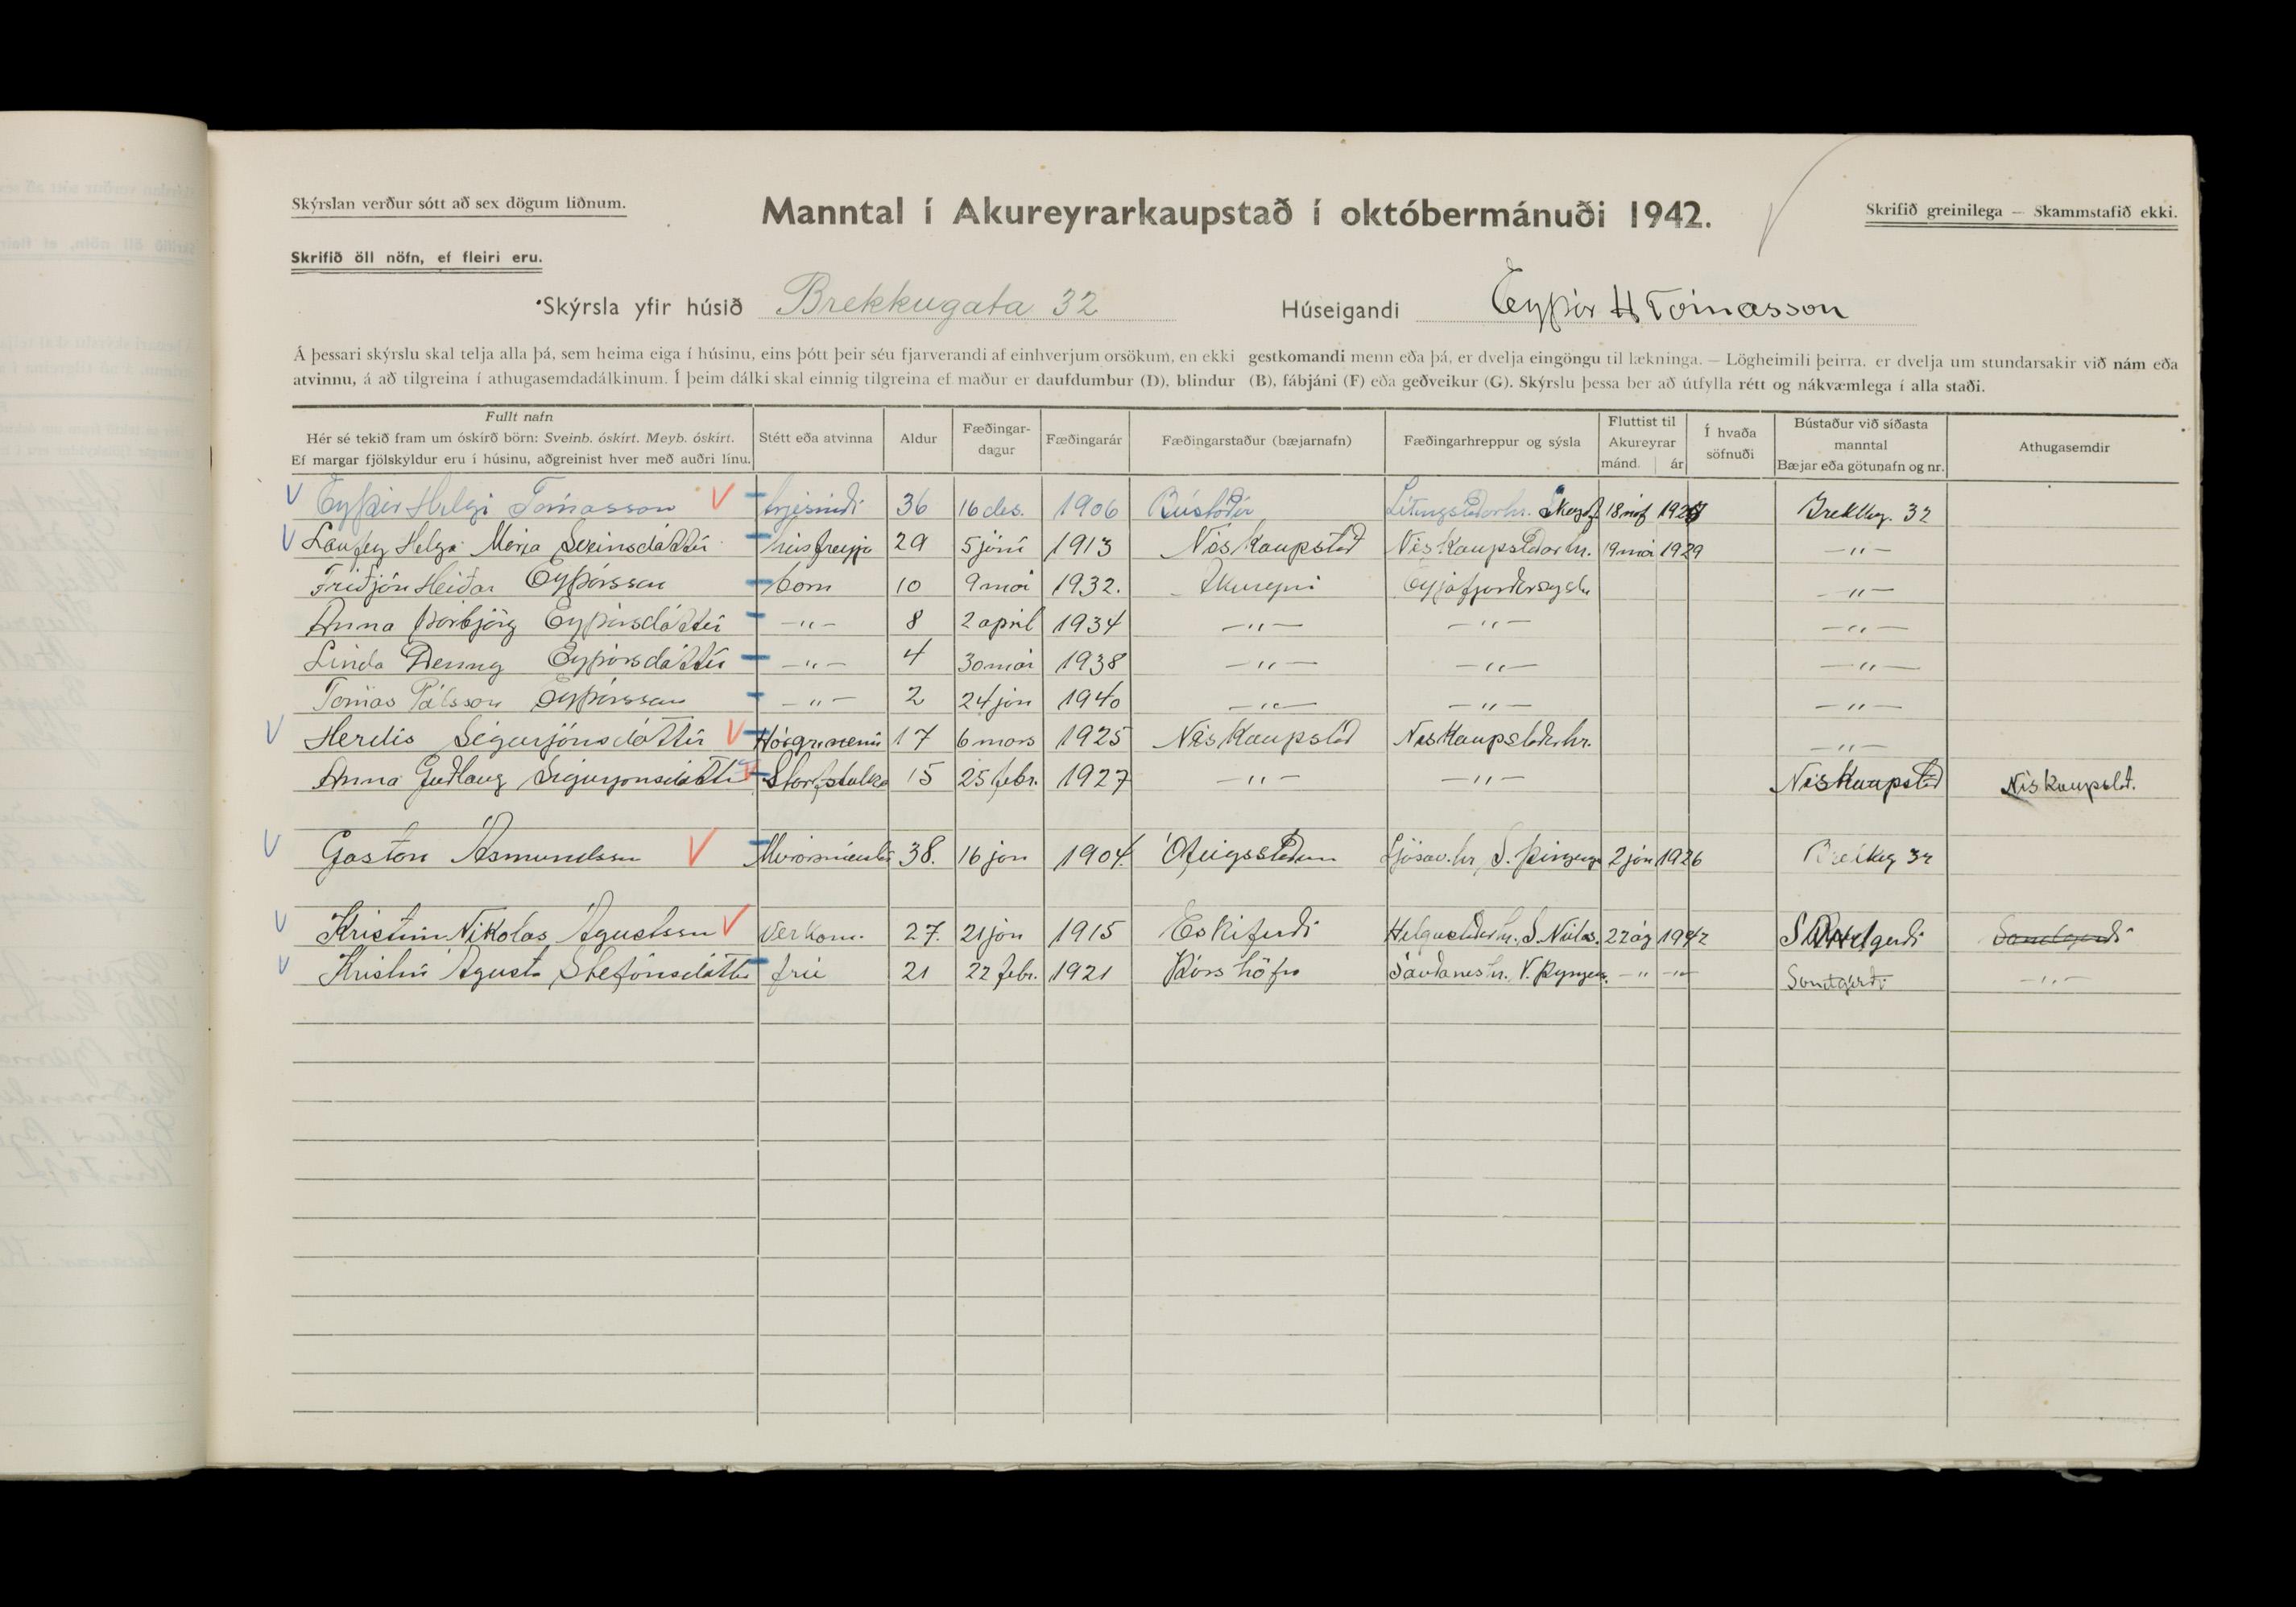 Skýrslan verður sótt að sex dögum liðnum.
Manntal í Akureyrarkaupstað í októbermánuði 1942.
Skrifið greinilega — Skammstafið ekki.
Skrifið öll nöfn, ef fleiri eru.
Skýrsla yfir húsið Brekkugata 32 Húseigandi Eyþór H Tómasson
Á þessari skýrslu skal telja alla þá, sem heima eiga í húsinu, eins þótt þeir séu fjarverandi af einhverjum orsökum, en ekki gestkomandi menn eða þá, er dvelja eingöngu til lækninga. — Lögheimili þeirra, er dvelja um stundarsakir við nám eða
atvinnu, á að tilgreina í athugasemdadálkinum. Í þeim dálki skal einnig tilgreina ef maður er daufdumbur (D), blindur (B), fábjáni (F) eða geðveikur (G). Skýrslu þessa ber að útfylla rétt og nákvæmlega í alla staði.
Fullt nafn
Hér sé tekið fram um óskírð börn: Sveinb. óskírt. Meyb. óskírt.
Ef margar fjölskyldur eru í húsinu, aðgreinist hver með auðri línu.
Stétt eða atvinna
Aldur
Fæðingar-
dagur
Fæðingarár
Fæðingarstaður (bæjarnafn)
Fæðingarhreppur og sýsla
Fluttist til
Akureyrar
mánd. ár
Í hvaða
söfnuði
Bústaður við síðasta
manntal
Bæjar eða götunafn og nr.
Athugasemdir
V Eyþór Helgi Tómasson V 36 16 des. 1906 Bústöðir Lítingsstaðarhr. Skagf. 18 nóf Brekkug. 32
V Laufey Helga Marja Sveinsdóttir húsfreyja 29 5 júní 1913 Nes Kaupstað Nes Kaupstaðarhr. 19 mai 1929 —"—
Friðjón Heiðar Eyþórsson barn 10 9 mai 1932. Akureyri Eyjafjarðarsyslu —"—
Anna Þorbjörg Eyþórsdóttir —"— 8 2 april 1934 —"— —"— —"—
Linda Denny Eyþórsdóttir —"— 4 30 mai 1938 —"— —"— —"—
Tómas Pálsson Eyþórsson —"— 2 24 jún 1940 —"— —"— —"—
V Herdís Sigurjónsdóttir V 17 6 mars 1925 Nes Kaupstað Nes Kaupstaðarhr. —"—
Anna Guðlaug Sigurjónsdóttir V Starfsstulka 15 25 febr. 1927 —"— —"— Nes Kaupstað Nes Kaupstað.
V Gaston Ásmundsson V Múrarameistari 38. 16 jún 1904. Ófeigsstöðum Ljósav.hr, S. Þingeyjs 2 jún 1926 Brekkug 32
V Kristinn Nikolas Ágústsson V Verkam. 27. 21 jún 1915 Eskifirði Helgustaðarhr. S. Múlas. 22 ág 1942 Sandgerði Sandgerði
V Kristín Ágústa Stefánsdóttir frú 21 22 febr. 1921 Þórshöfn Sauðaneshr. —"— —"— Sandgerði —"—